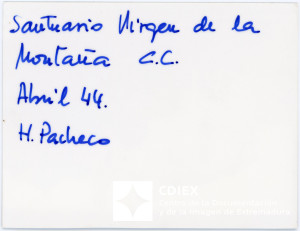 Santuario Virgen de la
Montaña C.C.
Abril 44.
H. Pacheco
CDIEX